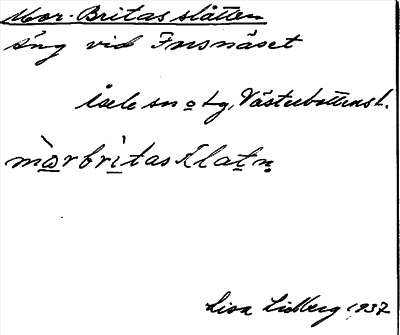 Mor-Britasslåtten
Äng vid Insnäset
Åsele sn o lg, Västerbottens l.
Lisa Lidberg 1937